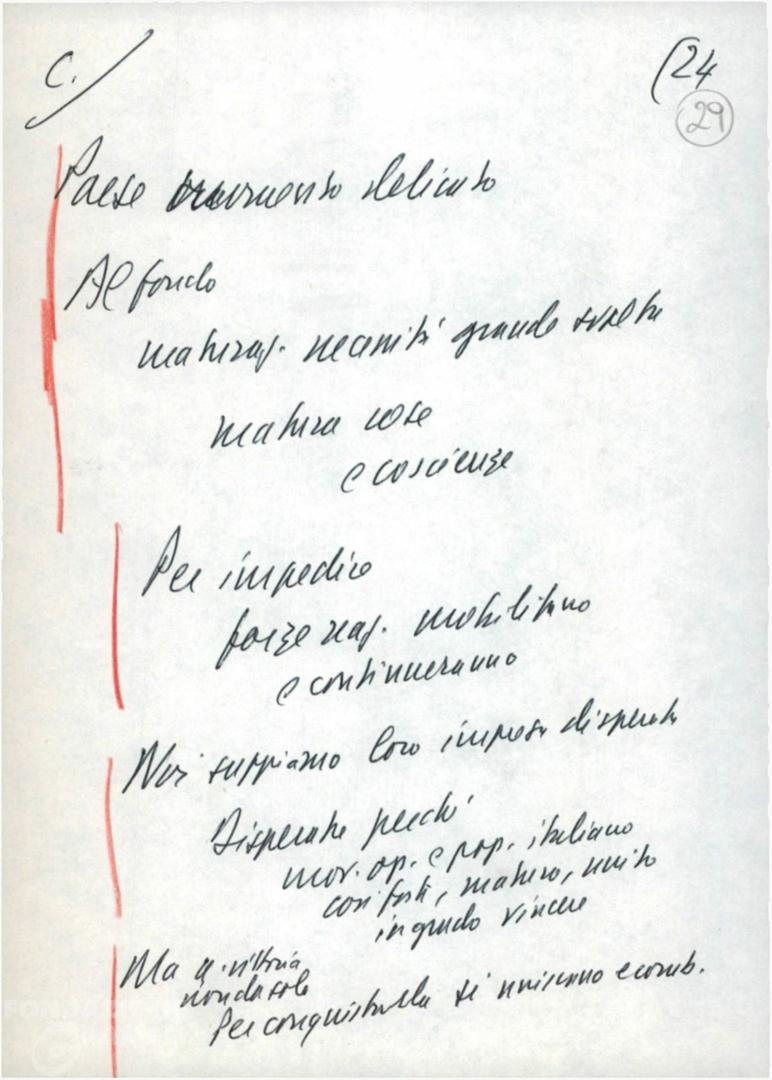 C.
(24
29
Paese momento delicato
Al fondo
maturaz. necessità grande svolta
matura cose
e coscienze
Per impedire
forze reaz. mobilitano
e continueranno
Noi sappiamo loro impresa disperata
Disperata perché
mov. op. e pop. italiano
così forti, maturo, unito
in grado vincere
Ma q. vittoria
non da sola
Per conquistarla si uniscano e comb.